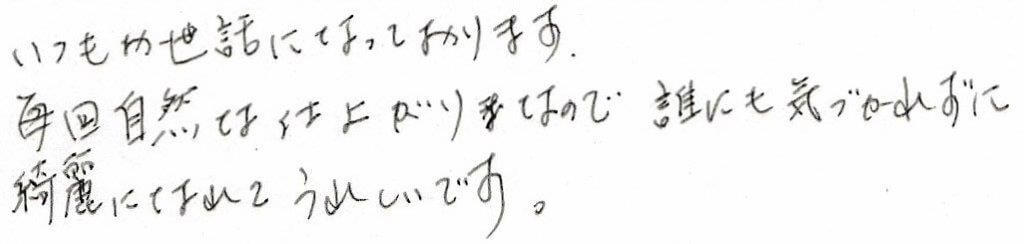 いつもお世話になっております.
毎回自然な仕上がりなので 誰にも気づかれずに
綺麗になれてうれしいです。